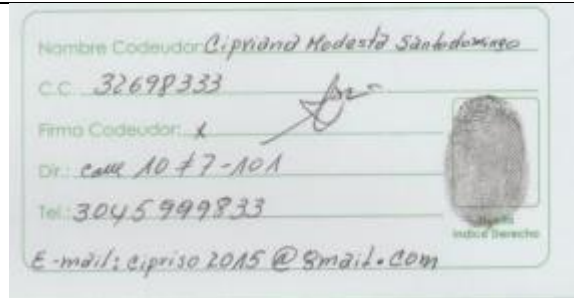 Nombre Codeudor: Cipriana Modesta Santodomingo
C.C. 32698333
Firma Codeudor: x
Dir.: calle 10 # 7-101
Tel.: 3045999833
Indice Derecho
E-mail: cipriso2015@gmail.com